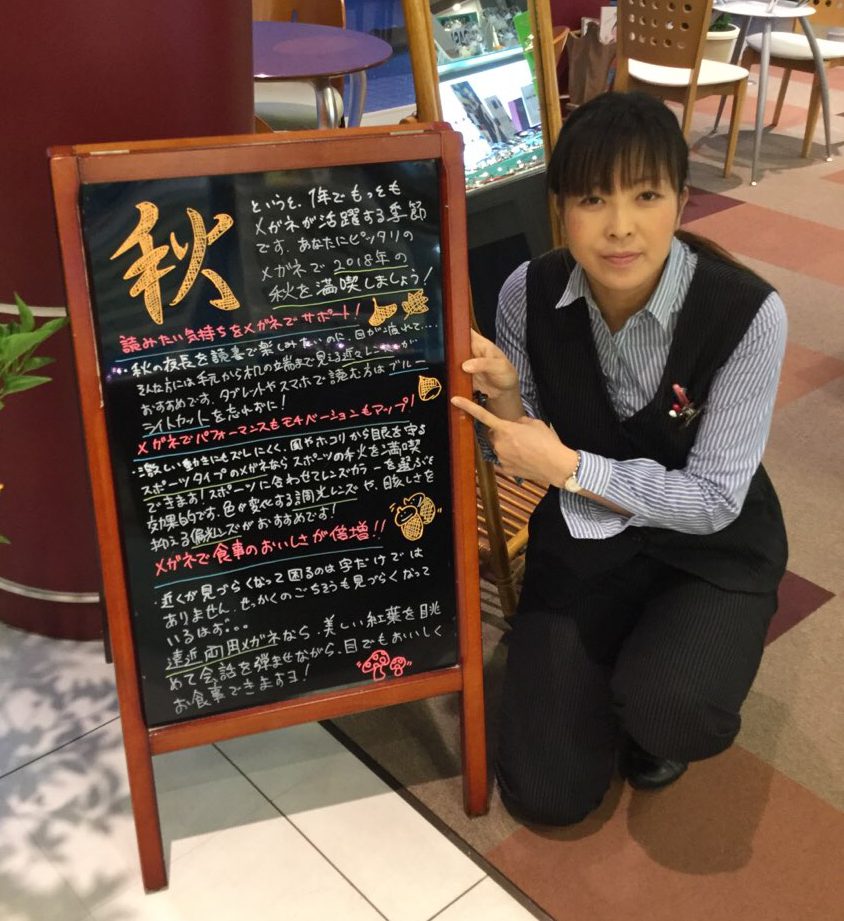 秋
というと、1年でもっとも
メガネが活躍する季節
です。あなたにピッタリの
メガネで2018年の
秋を満喫しましょう！
読みたい気持ちをメガネでサポート！
・秋の夜長を読書で楽しみたいのに、目が疲れて…
そんな方には手元から机の端まで見える近々レンズが
おすすめです。タブレットやスマホで読む方はブルー
ライトカットを忘れずに！
メガネでパフォーマンスもモチベーションもアップ！
・激しい動きにもズレにくく、風やホコリから目を守る
スポーツタイプのメガネならスポーツの秋を満喫
できます！スポーツに合わせてレンズカラーを選ぶと
効果的です。色が変化する調光レンズや、眩しさを
抑える偏光レンズがおすすめです！
メガネで食事のおいしさが倍増！！
・近くが見づらくなって困るのは字だけでは
ありません。せっかくのごちそうも見づらくなって
いるはず…。
遠近両用メガネなら、美しい紅葉を眺
めて会話を弾ませながら、目でもおいしく
お食事できますヨ！